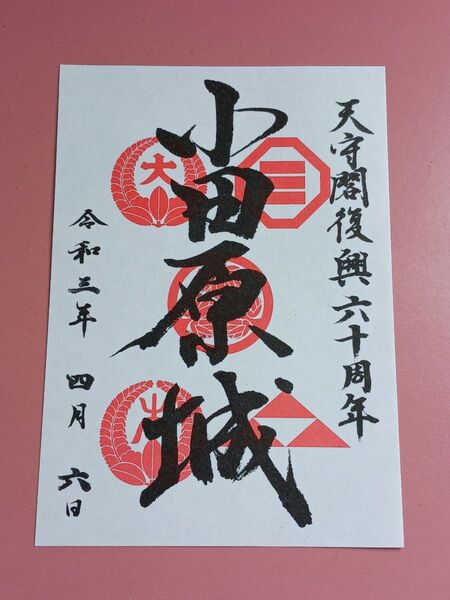 天守閣復興六十周年
小田原城
令和三年 四月 六日
大